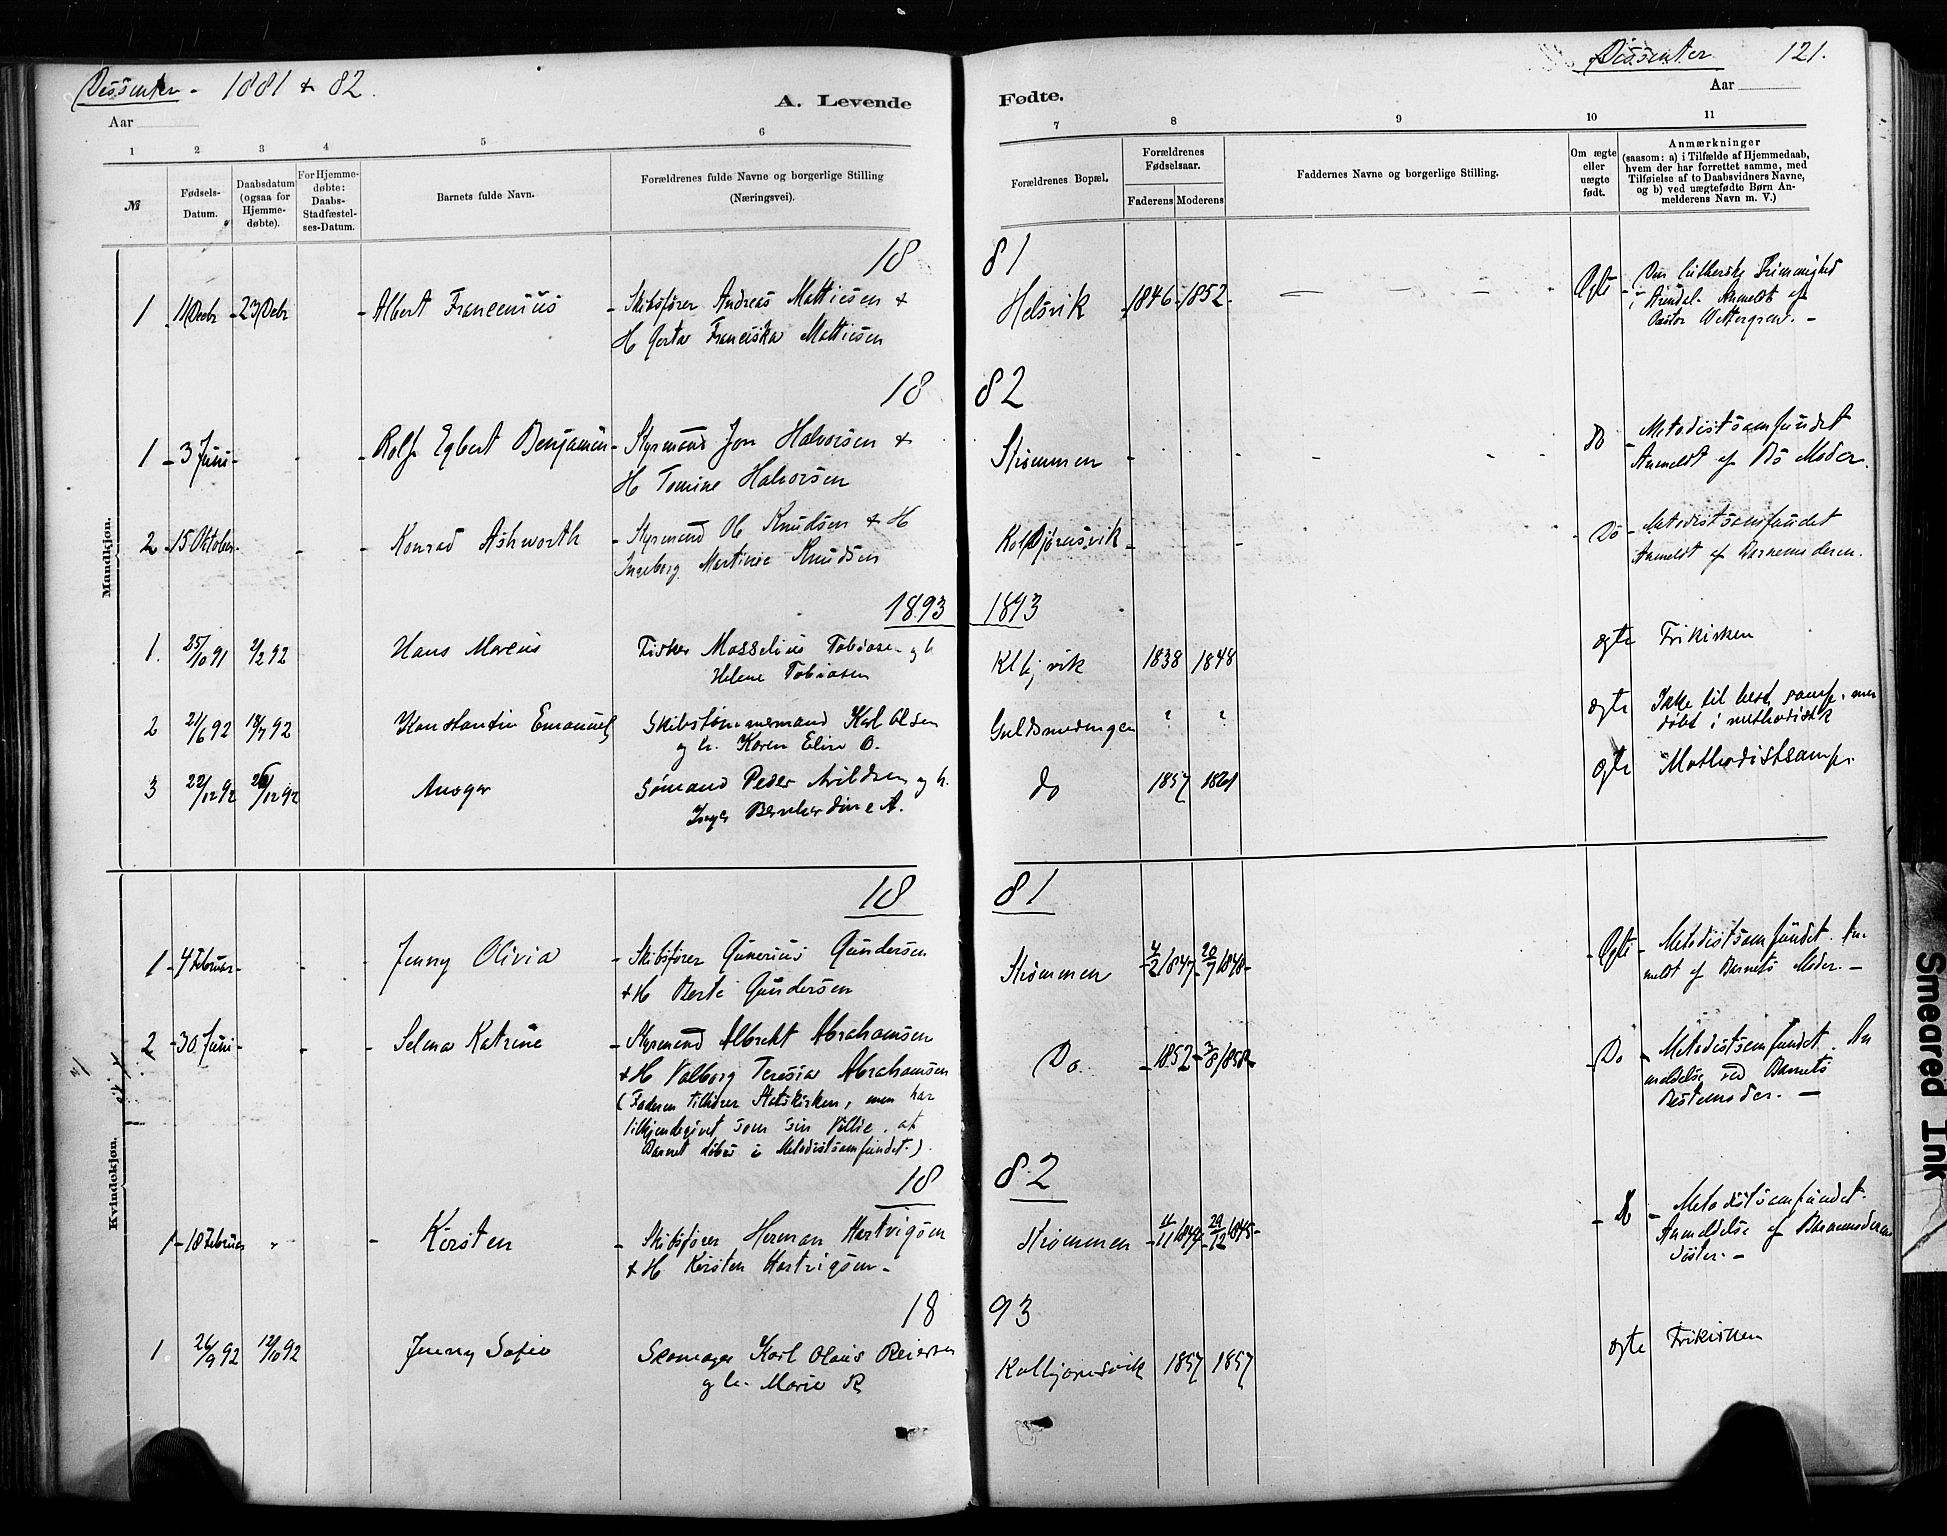 Dissenter - 1881 & 82.
Dissenter 121.
Aar
A. Levende Fødte.
Aar
1 2 3 4 5 6 7 8 9 10 11
№
Fødsels-Datum.
Daabsdatum (ogsaa for Hjemmedøbte).
For Hjemmedøbte: Daabs-Stadfæstelses-Datum.
Barnets fulde Navn.
Forældrenes fulde Navne og borgerlige Stilling
(Næringsvei).
Forældrenes Bopæl.
Forældrenes Fødselsaar.
Faderens Moderens
Faddernes Navne og borgerlige Stilling.
Om ægte eller uægte født.
Anmærkninger
(saasom: a) i Tilfælde af Hjemmedaab,
hvem der har forrettet samme, med
Tilføielse af to Daabsvidners Navne,
og b) ved uægtefødte Børn Anmelderens Navn m. V.)
Mandkjøn.
18 81
1 11 Decbr - 23 Decbr - Albert Francenius - Skibsfører Andreas Mattiesen & Helsvik - 1846 - 1852 - Ægte - Den lutherske Frimenighed
H Franciska Mattiesen i Arendal. Anmeldt af
Pastor Wettergren. -
18 82
1 - 3 Juni - Rolf Egbert Benjamin - Styrmand Jon Halvorsen & Strømmen Do - Metodistsamfundet
H Tomine Halvorsen Anmeldt af Moder.
2 - 15 Oktober - Konrad Ashworth - Styrmand Ole Knudsen & H Kolbjørnsvik - Do - Metodistsamfundet
Ingeborg Martinie Knudsen Anmeldt af Barnemoderen.
1893 1893
1. 25/10 91 2/2 92 Hans Marcus Fisker Tobiasen og h 1838 1848 ægte Frikirken
Helene Tobiasen
2 21/6 92 18/7 92 Konstantin Emanuel Skibstømmermand Karl Olsen Guldsmedengen ? ? ægte Ikke til best. samf. men
og h. Karen Elin O. døbt i methodistk
3 22/12 92 26/12 92 Ansgar Sømand Peder Arildsen og h. do 1857 1861 ægte Methodistsamf.
Inger Bernhardine A.
Kvindekjøn.
18 81
1 - 4 Februar - Jenny Olivia - Skibsfører Gunerius Gundersen Strømmen 4/2 1847 - 20/7 1848 - Ægte - Metodistsamfundet. An-
& H Berte Gundersen meldt af Barnets Moder. -
2 - 30 Juni - Selma Katrine - Styrmand Albrekt Abrahamsen Do. - 1852 - 3/8 1858 - Do - Metodistsamfundet. An
& H Valborg Teresia Abrahamsen meldelse ved Barnets
(Faderen tilhører Statskirken, men har Bestemoder. -
tilkjendegivet som sin Villie, at
Barnet døbes i Metodistsamfundet.).
18 82
1 - 18 Februar - Kirsten - Skibsfører Herman Hartvigsen Strømmen - 11/11 1844 - 29/12 1845 - Do - Metodistsamfundet.
& H Kirsten Hartvigsen - Anmeldelse af Barnemoderens
Søster. -
18 93
1 26/9 92 12/10 92 Jenny Sofie Skomager Karl Olaus Reiersen Kolbjørnsvik 1857 1857 ægte Frikirken
og h. Marie R
Smeared Ink